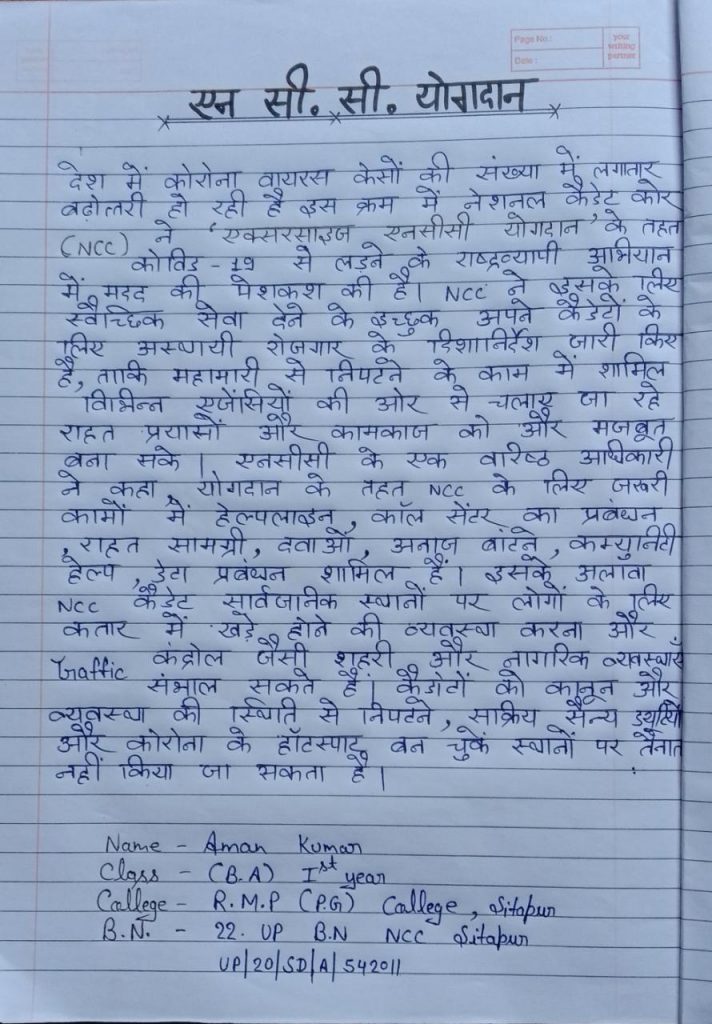 Page No.:
Date:
your
writing
partner
एन सी. सी. योगदान
देश में कोरोना वायरस केसों की संख्या में लगातार
बढ़ोतरी हो रही है इस क्रम में नेशनल कैडेट कोर
(NCC) ने 'एक्सरसाइज एनसीसी योगदान' के तहत
कोविड - 19 से लड़ने के राष्ट्रव्यापी अभियान
में मदद की पेशकश की है। NCC ने इसके लिए
स्वैच्छिक सेवा देने के इच्छुक अपने कैडेटों के
लिए अस्थायी रोजगार के दिशानिर्देश जारी किए
है, ताकि महामारी से निपटने के काम में शामिल
विभिन्न एजेंसियों की ओर से चलाए जा रहे
राहत प्रयासों और कामकाज को और मजबूत
बना सके। एनसीसी के एक वरिष्ठ अधिकारी
ने कहा, योगदान के तहत NCC के लिए जरूरी
कामों में हेल्पलाइन, कॉल सेंटर का प्रबंधन
, राहत सामग्री, दवाओं, अनाज बांटने, कम्युनिटी
हेल्प, डेटा प्रबंधन शामिल हैं। इसके अलावा
NCC कैडेट सार्वजनिक स्थानों पर लोगों के लिए
कतार में खड़े होने की व्यवस्था करना और
Traffic कंट्रोल जैसी शहरी और नागरिक व्यवस्थाएँ
संभाल सकते हैं। कैडेटों को कानून और
व्यवस्था की स्थिति से निपटने, सक्रिय सैन्य ड्यूटियों
और कोरोना के हॉटस्पाट बन चुके स्थानों पर तैनात
नहीं किया जा सकता है।
Name - Aman Kumar
Class - (B.A) Ist year
College - R.M.P (P.G) College, Sitapur
B.N. - 22. UP B.N NCC Sitapur
UP/20/SD/A/542011